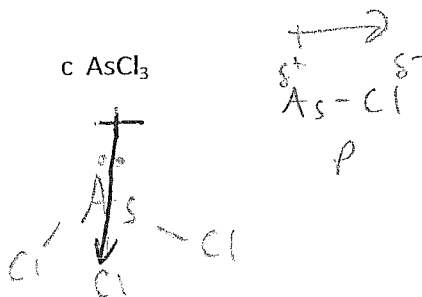 c AsCl₃
δ+ δ-
As - Cl
P
As
Cl Cl
Cl